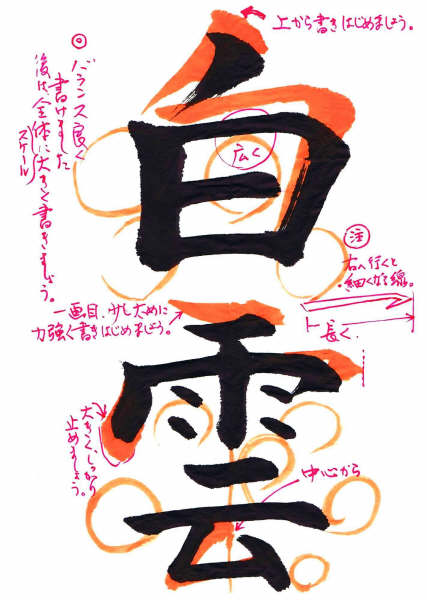 上から書きはじめましょう。
◎バランス良く
書けました
後は、全体に大きく書きましょう。
(スケール)
白
広く
注
右へ行くと
細くなる線。
長く
一画目、少し太めに
力強く書きはじめましょう。
雲
大きく、しっかり
止めましょう。
中心から